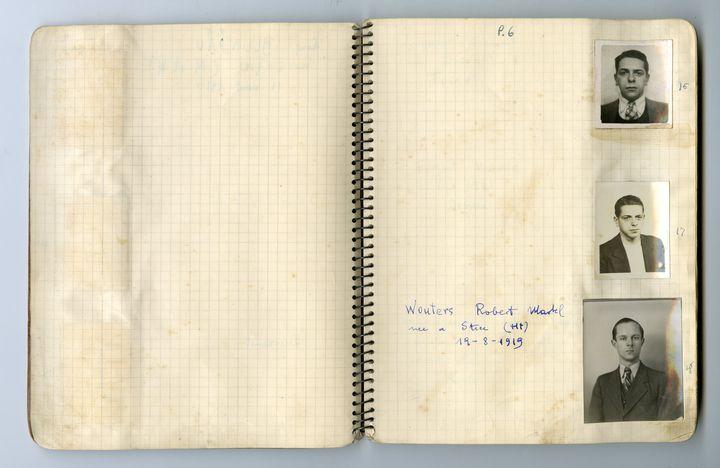 P.6
16
17
Wouters Robert Marcel
née a Stree (Ht)
19-8-1919
18